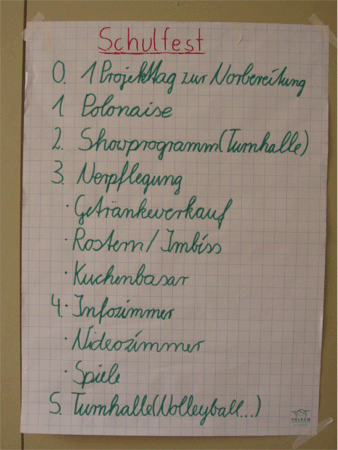 Schulfest
0. 1 Projekttag zur Vorbereitung
1. Polonaise
2. Showprogramm (Turnhalle)
3. Verpflegung
· Getränkeverkauf
· Rostern / Imbiss
· Kuchenbasar
4. · Infozimmer
· Videozimmer
· Spiele
5. Turnhalle (Volleyball...)